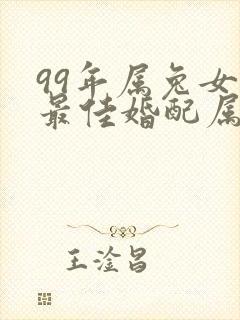 99年属兔女
最佳婚配属
王淦昌